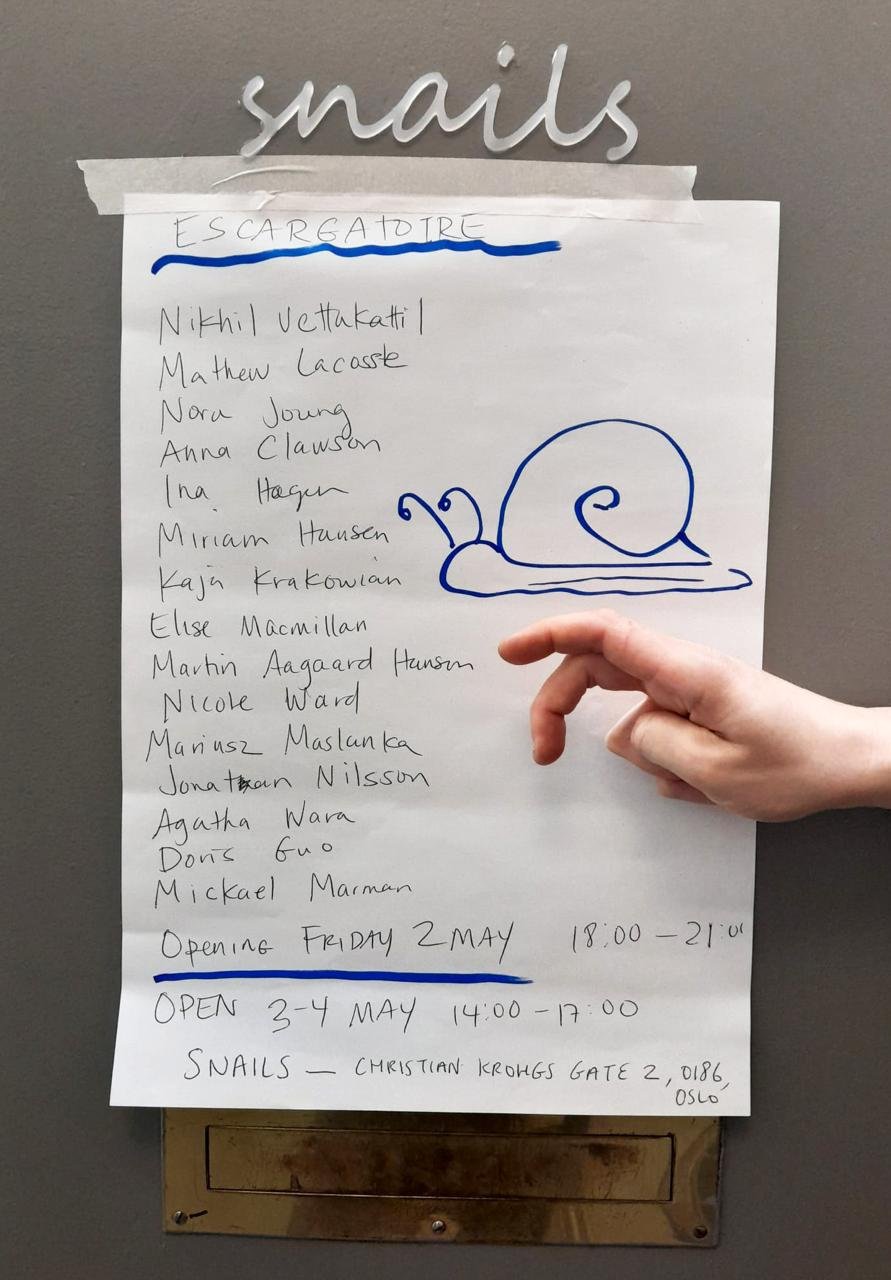 snails
ESCARGATOIRE
Nikhil Vettukattil
Mathew Lacosste
Nora Joung
Anna Clawson
Ina Hagen
Miriam Hansen
Kaja Krakowian
Elise Macmillan
Martin Aagaard Hansen
Nicole Ward
Mariusz Maslanka
Jonathan Nilsson
Agatha Wara
Doris Guo
Mickael Marman
Opening FRIDAY 2 MAY 18:00 – 21:00
OPEN 3-4 MAY 14:00 – 17:00
SNAILS — CHRISTIAN KROHGS GATE 2, 0186,
OSLO